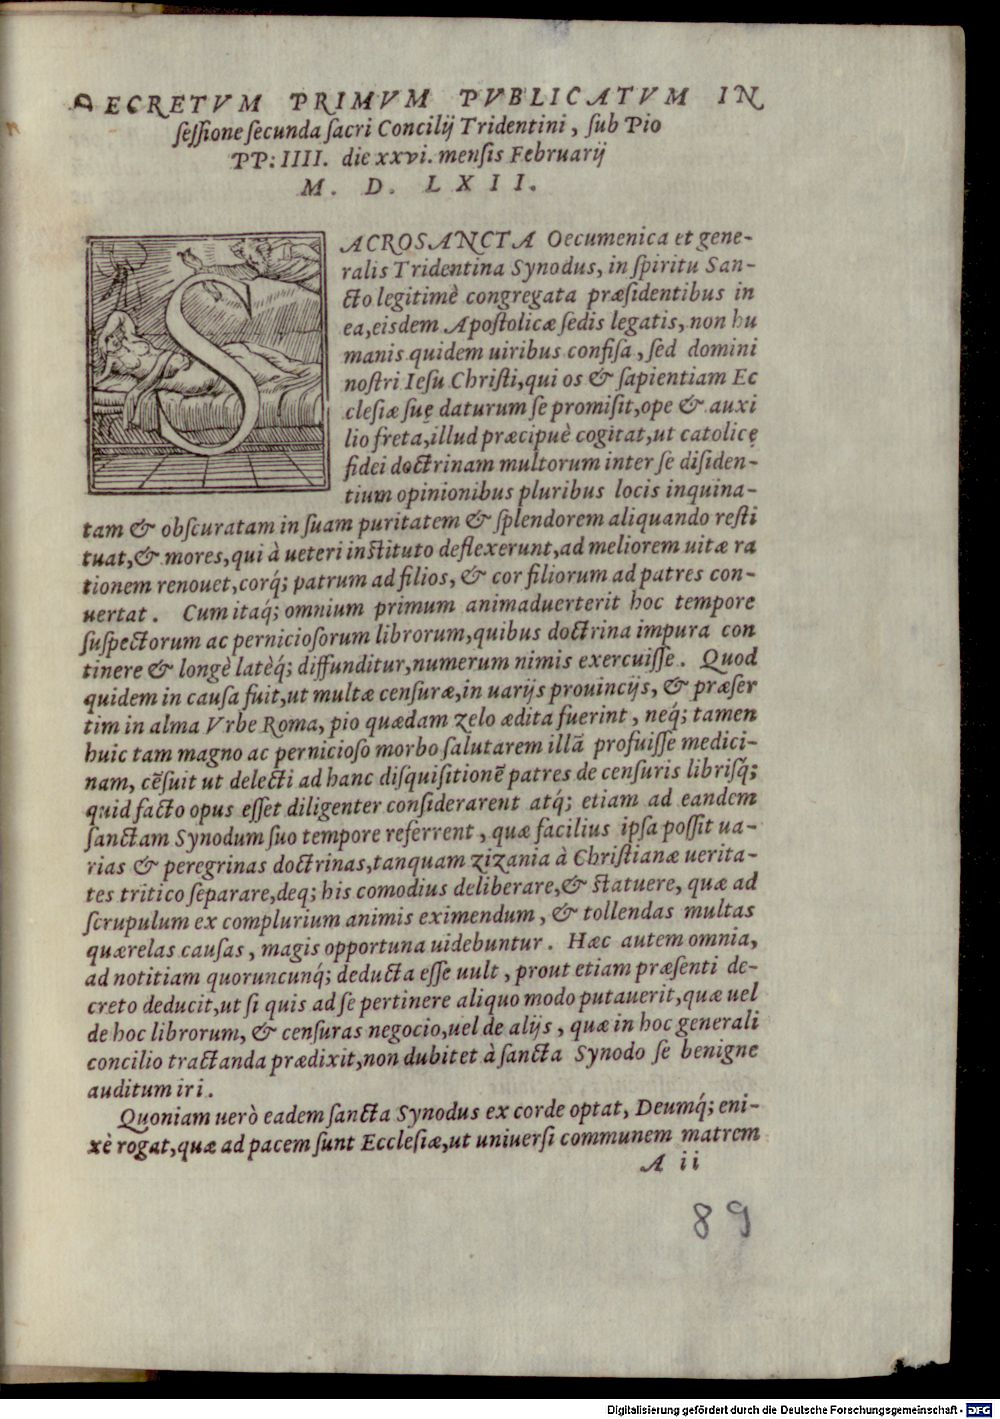 DECRETVM PRIMVM PVBLICATVM IN
ſeſſione ſecunda ſacri Concilij Tridentini, ſub Pio
PP: IIII. die xxvi. menſis Februarij
M. D. LXII.
SACROSANCTA Oecumenica et gene-
ralis Tridentina Synodus, in ſpiritu San-
cto legitimè congregata præſidentibus in
ea, eiſdem Apoſtolicæ ſedis legatis, non hu
manis quidem uiribus confiſa, ſed domini
noſtri Ieſu Chriſti, qui os & ſapientiam Ec
cleſiæ ſuę daturum ſe promiſit, ope & auxi
lio freta, illud præcipuè cogitat, ut catolicę
fidei doctrinam multorum inter ſe diſiden-
tium opinionibus pluribus locis inquina-
tam & obſcuratam in ſuam puritatem & ſplendorem aliquando reſti
tuat, & mores, qui à ueteri inſtituto deflexerunt, ad meliorem uitæ ra
tionem renouet, corq́; patrum ad filios, & cor filiorum ad patres con-
uertat. Cum itaq́; omnium primum animaduerterit hoc tempore
ſuſpectorum ac pernicioſorum librorum, quibus doctrina impura con
tinere & longè latèq́; diffunditur, numerum nimis exercuiſſe. Quod
quidem in cauſa fuit, ut multæ cenſuræ, in uarijs prouincijs, & præſer
tim in alma Vrbe Roma, pio quædam zelo ædita fuerint, neq́; tamen
huic tam magno ac pernicioſo morbo ſalutarem illā profuiſſe medici-
nam, cēſuit ut delecti ad hanc diſquiſitionē patres de cenſuris libriſq́;
quid facto opus eſſet diligenter conſiderarent atq́; etiam ad eandem
ſanctam Synodum ſuo tempore referrent, quæ facilius ipſa poſſit ua-
rias & peregrinas doctrinas, tanquam zizania à Chriſtianæ uerita-
tes tritico ſeparare, deq; his comodius deliberare, & ſtatuere, quæ ad
ſcrupulum ex complurium animis eximendum, & tollendas multas
quærelas cauſas, magis opportuna uidebuntur. Hæc autem omnia,
ad notitiam quoruncunq́; deducta eſſe uult, prout etiam præſenti de-
creto deducit, ut ſi quis ad ſe pertinere aliquo modo putauerit, quæ uel
de hoc librorum, & cenſuras negocio, uel de alijs, quæ in hoc generali
concilio tractanda prædixit, non dubitet à ſancta Synodo ſe benigne
auditum iri.
Quoniam uerò eadem ſancta Synodus ex corde optat, Deumq́; eni-
xè rogat, quæ ad pacem ſunt Eccleſiæ, ut uniuerſi communem matrem
A ii
89
Digitalisierung gefördert durch die Deutsche Forschungsgemeinschaft - DFG